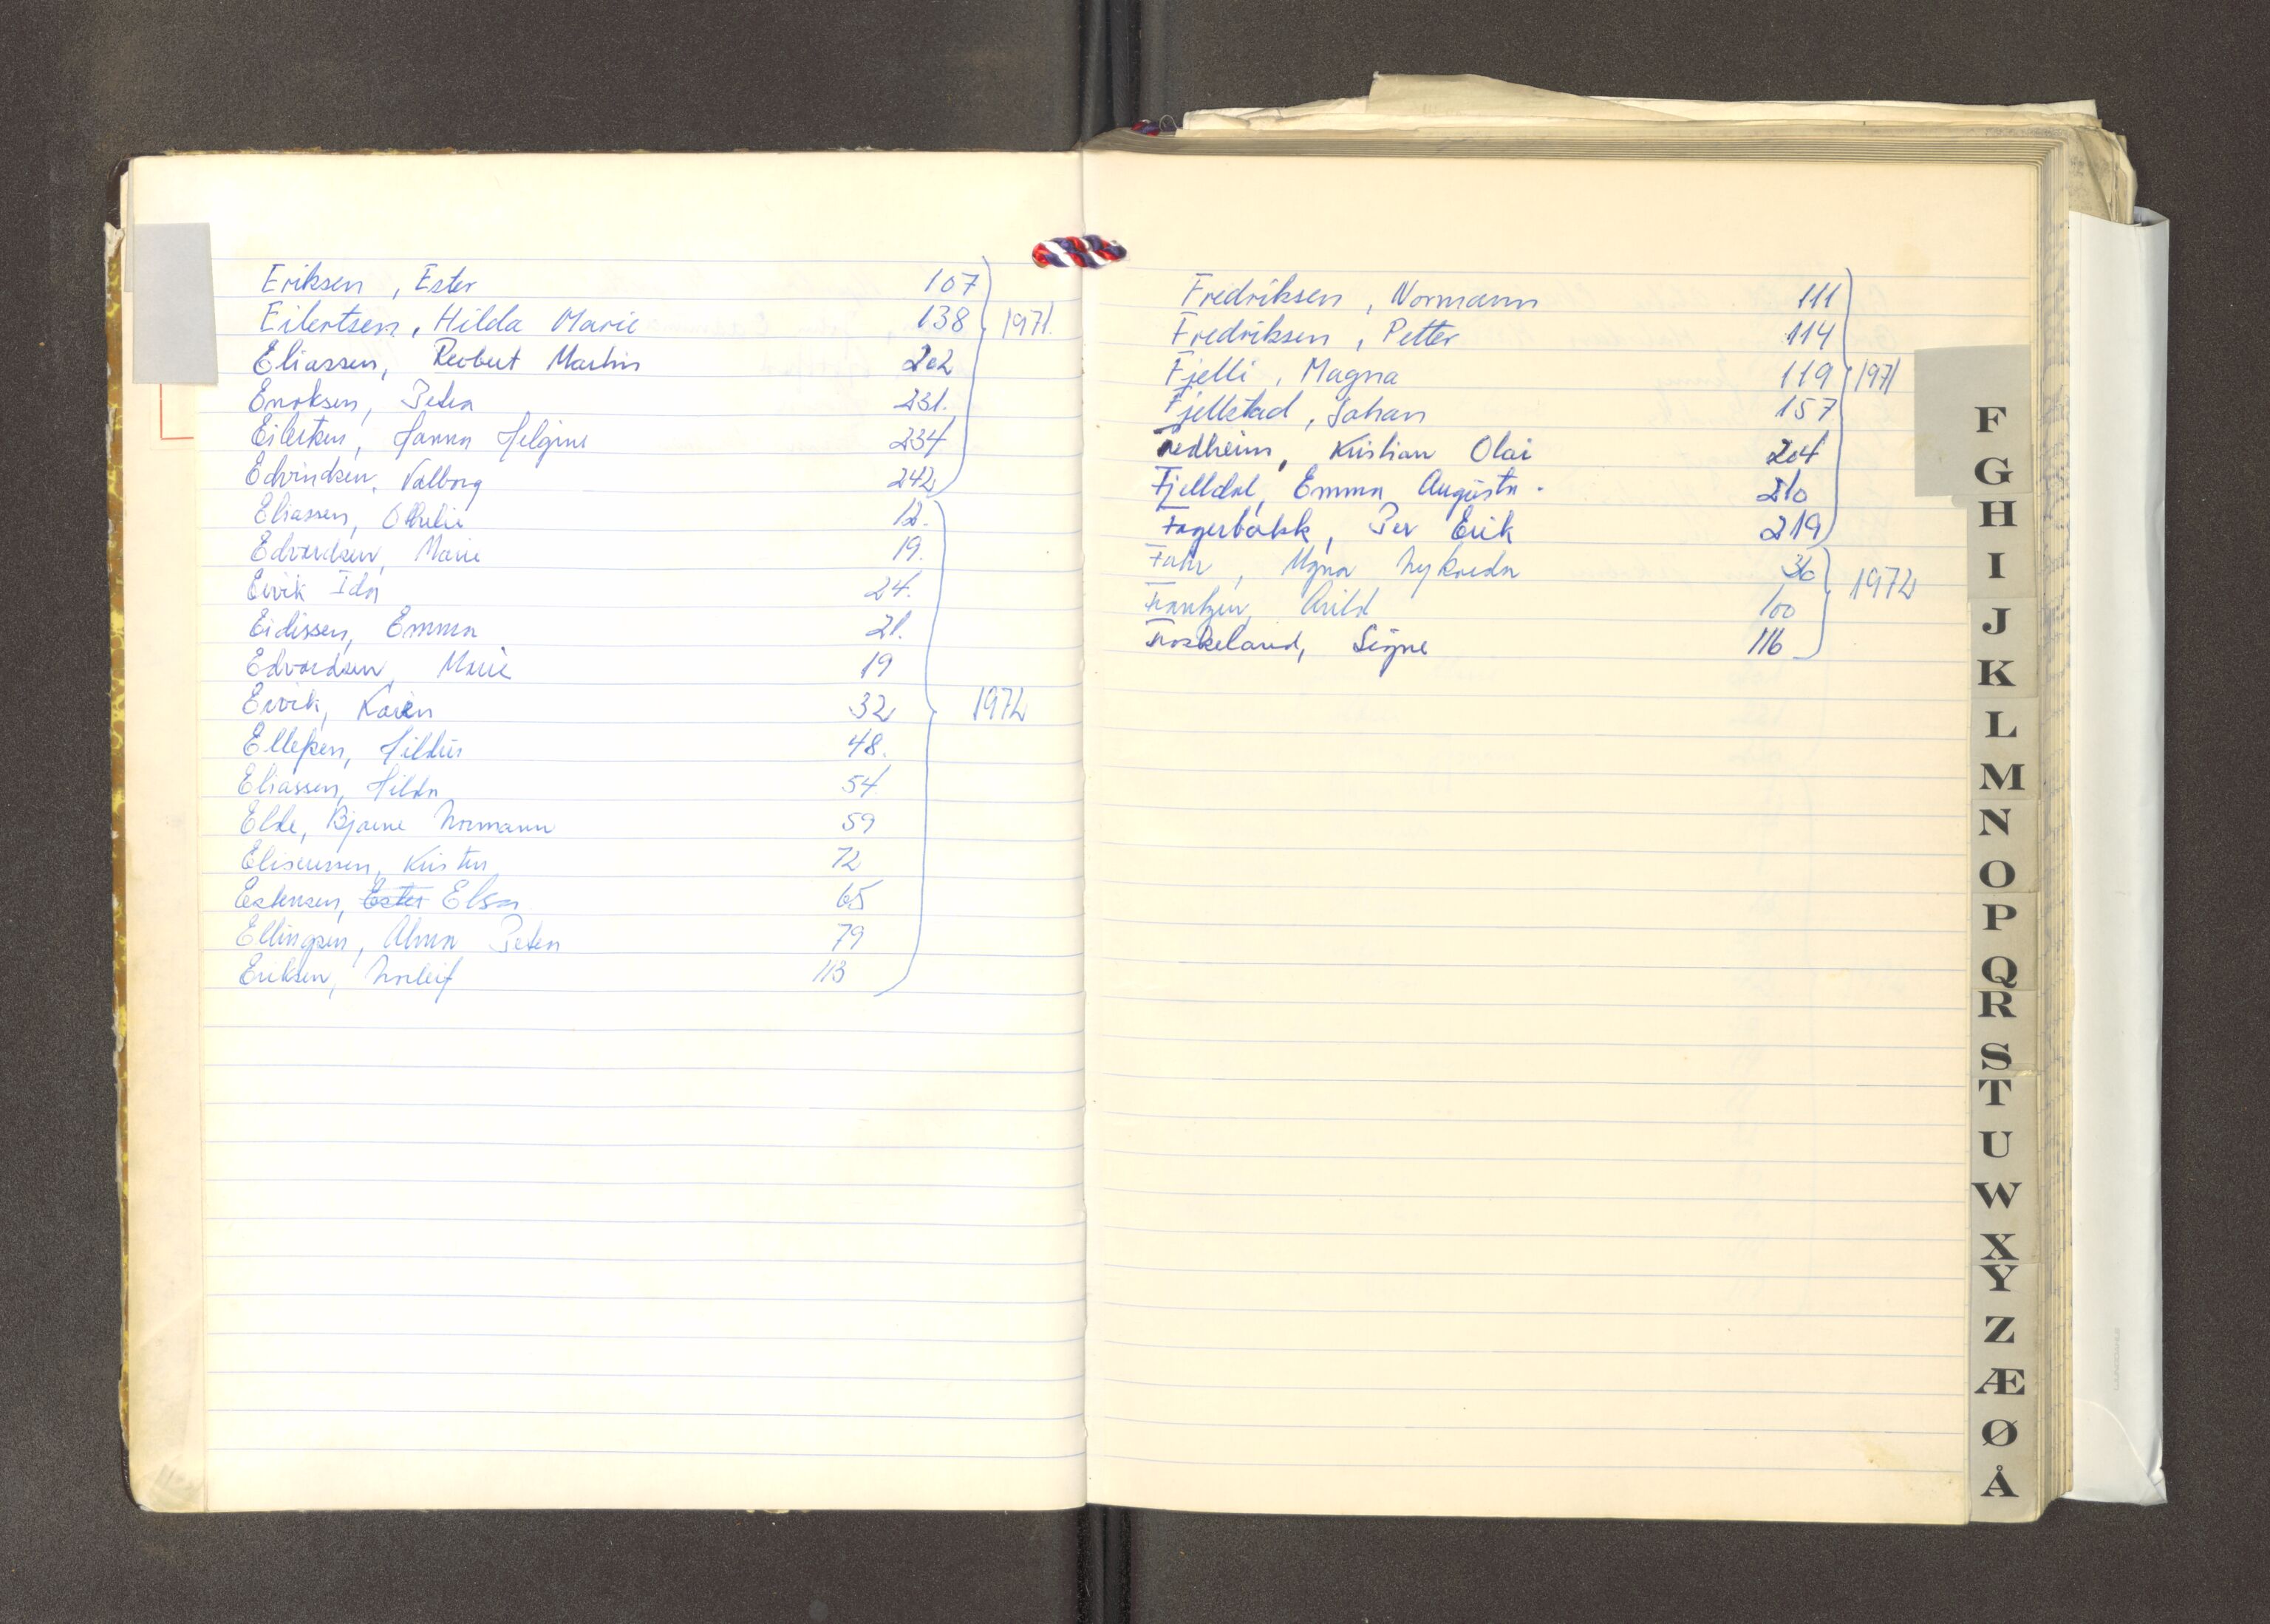 Eriksen, Ester 107
Eilertsen, Hilda Marie 138 1971.
Eliassen, Robert Martin 202
Enoksen, Petra 231.
Eilertsen, Hanna Helgine 234
Edvindsen, Valborg 242
Eliassen, Othelie 12.
Edvardsen, Marie 19.
Eivik Ida 24.
Eidissen, Emma 21.
Edvardsen, Marie 19
Eivik, Karen 32 1972
Ellefsen, Hildur 48.
Eliassen, Hilda 54
Elde, Bjarne Normann 59
Eliseussen, Kristen 72
Estensen, Ester Elsa 65
Ellingsen, Alma Petra 79
Eriksen, Norleif 113
Fredriksen, Normann 111
Fredriksen, Petter 114
Fjelli, Magna 119 1971
Fjellstad, Johan 157
Fredheim, Kristian Olai 204
Fjelldal, Emma Augusta. 210
Fagerbakk, Per Erik 219
Fahr, Nykaeda 36 1972
Frantzen, Arild 100
Froskeland, Signe 116
F
G
H
I
J
K
L
M
N
O
P
Q
R
S
T
U
W
X
Y
Z
Æ
Ø
Å